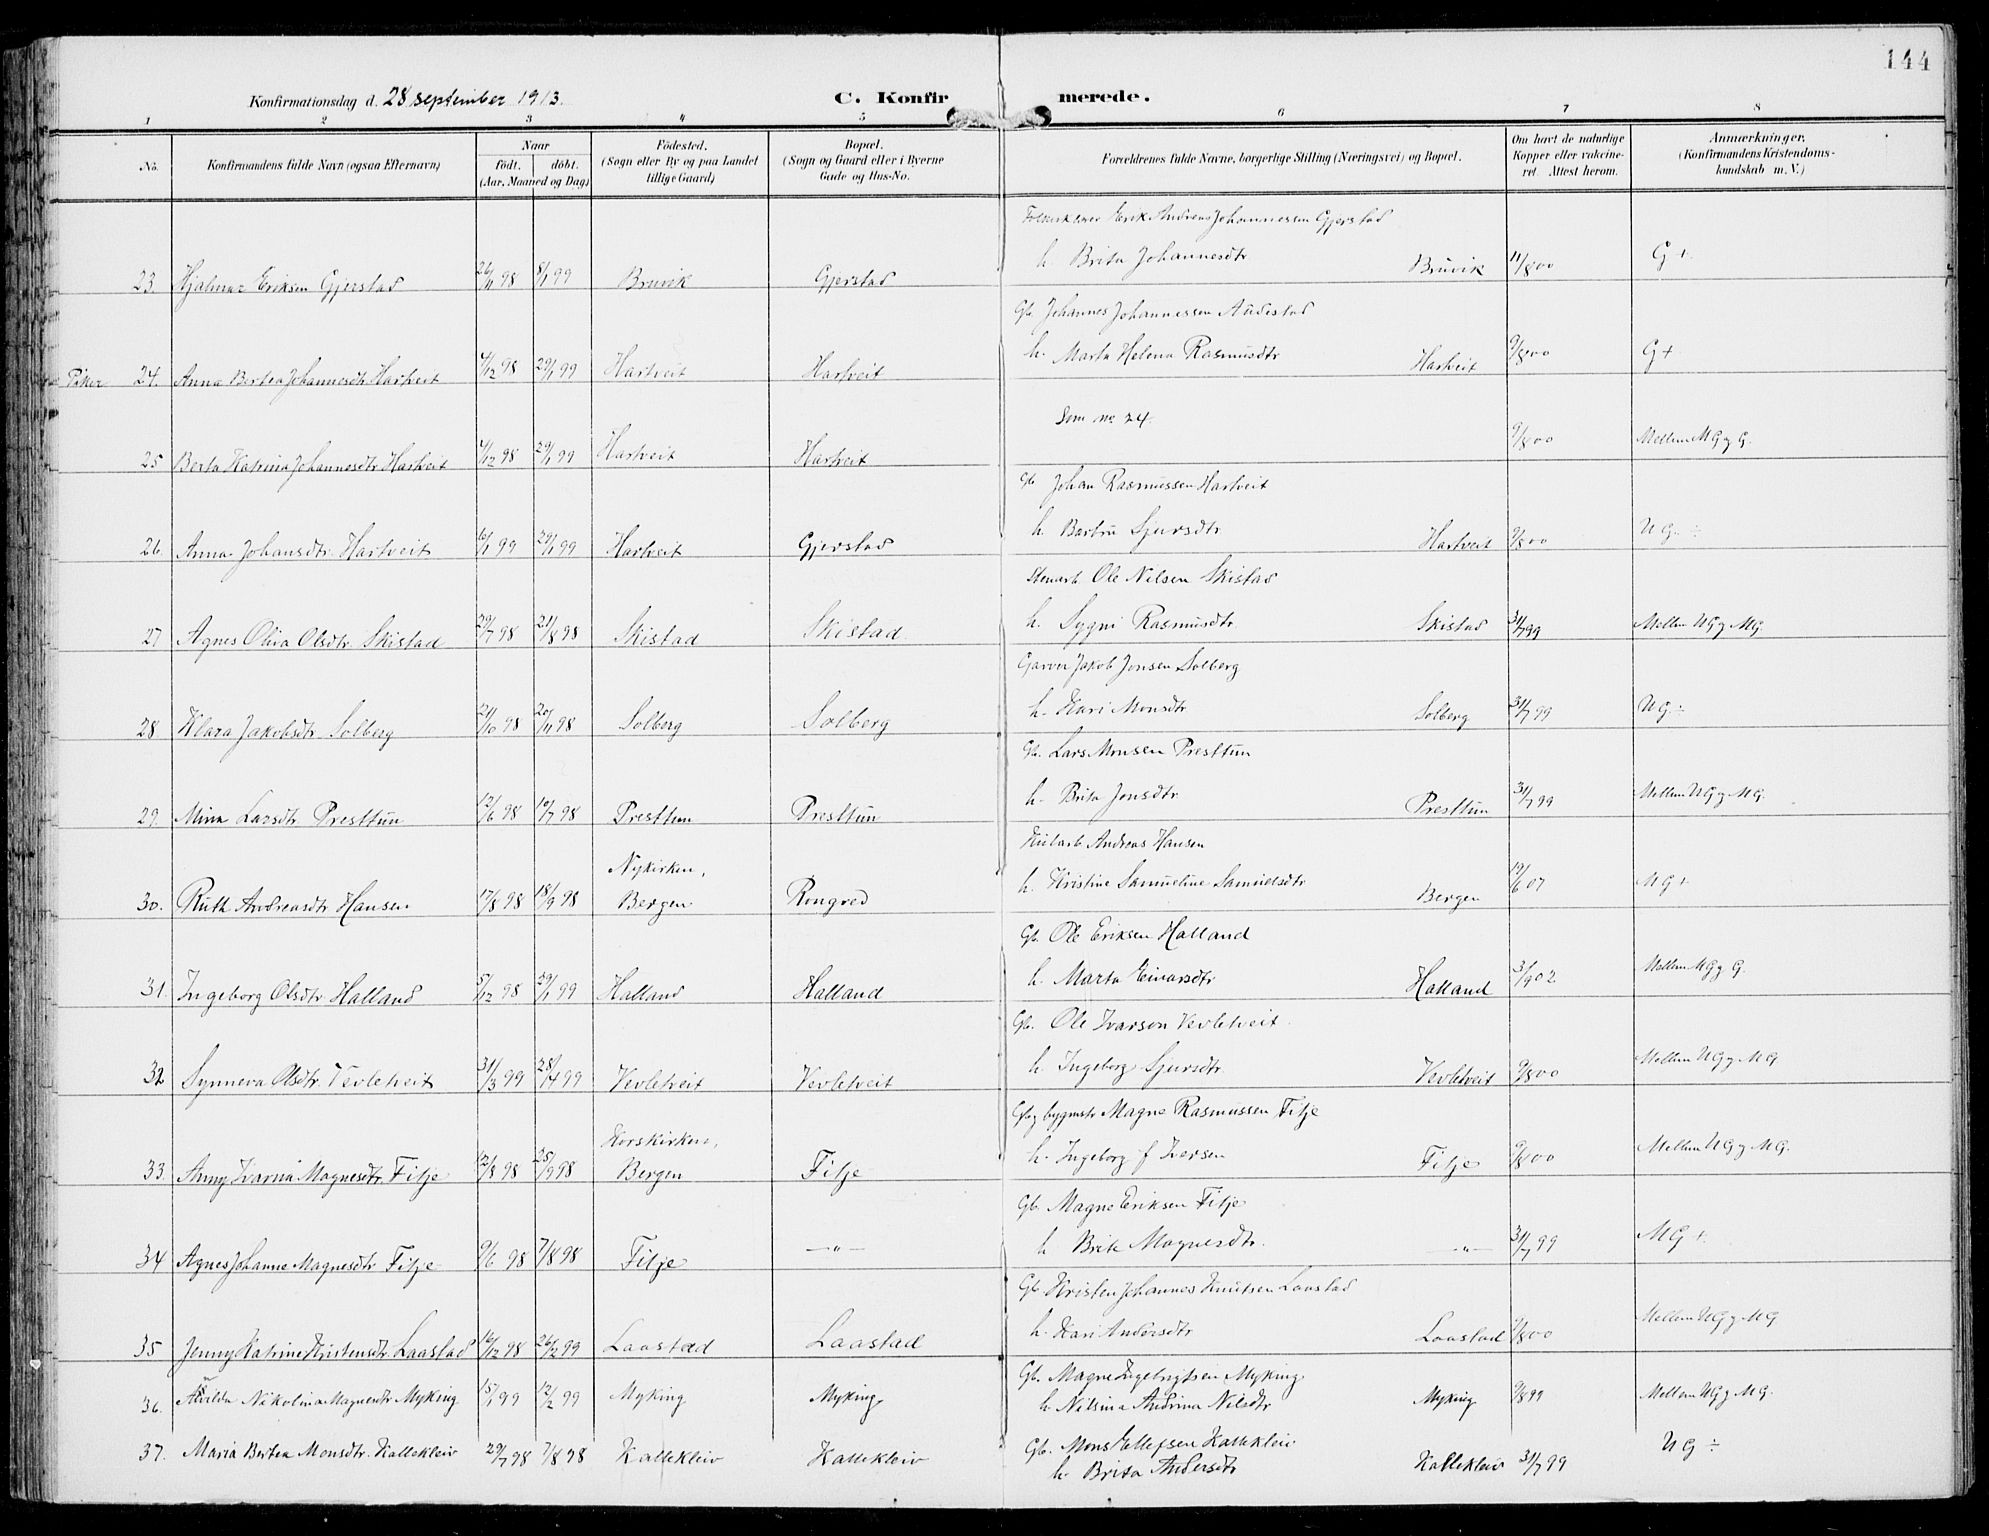 144
Konfirmationsdag d. 28 september 1913.
C. Konfirmerede.
1 2 3 4 5 6 7 8
No. | Konfirmandens fulde Navn (ogsaa Efternavn) | Naar født. døbt. (Aar, Maaned og Dag) | Fødested. (Sogn eller By og paa Landet tillige Gaard) | Bopæl. (Sogn og Gaard eller i Byerne Gade og Hus-No. | Forældrenes fulde Navne, borgerlige Stilling (Næringsvei) og Bopæl. | Om havt de naturlige Kopper eller vakcineret. Attest herom. | Anmærkninger. (Konfirmandens Kristendomskundskab m. V.)
Erik Andreas Johannessen Gjerstad
h. Brita Johannesdtr Bruvik 11/8 00 G +
23. Hjalmar Eriksen Gjerstad 26/11 98 8/1 99 Bruvik Gjerstad
Gb. Johannes Johannessen
h. Marta Helena Rasmusdtr Hartveit 9/8 00 G +
Piker 24. Anna Bertea Johannesdtr. Hartveit 4/12 98 29/1 99 Hartveit Hartveit
Som no 24.
25 Berta Katrina Johannesdtr. Hartveit 4/12 98 29/1 99 Hartveit Hartveit 9/8 00 Mellem MG g G.
Gb Johan Rasmussen Hartveit
h. Barbru Sjursdtr Hartveit 9/8 00 UG. ÷
26. Anna Johansdtr. Hartveit 16/1 99 29/1 99 Hartveit Gjerstad
Stenarb. Ole Nilsen Skistad
h. Sygni Rasmusdtr. Skistad 31/7 99 Mellem UG g MG.
27 Agnes Olivia Olsdtr. Skistad 29/7 98 21/8 98 Skistad Skistad
Garver Jakob Jonsen Solberg
h. Kari Monsdtr Solberg 31/7 99 UG. ÷
28 Klara Jakobsdtr. Solberg 21/10 98 20/11 98 Solberg Solberg
Gb. Lars Monsen Presttun
h. Brita Jonsdtr Presttun 31/7 99 Mellem UG g MG.
29. Mina Larsdtr Presttun 12/6 98 10/7 98 Presttun Presttun
Andreas Hansen
h. Kristine Samueline Samuelsdtr Bergen 19/6 07 MG +
30. Ruth Andreasdtr Hansen 17/8 98 18/9 98 Nykirken, Bergen Rongved
Gb. Ole Eriksen Halland
h. Marta Eivarsdtr Halland 3/9 02 Mellem MG g G.
31. Ingeborg Olsdtr. Halland 5/12 98 29/1 99 Halland Halland
Gb. Ole Ivarson Vevletveit
h. Ingeborg Sjursdtr Vevletveit 9/8 00 Mellem UG g MG
32 Synneva Olsdtr. Vevletveit 31/3 99 Vevletveit Vevletveit
Gb. g bygmstr Magne Rasmussen Fitje
h. Ingeborg f. Iversen Fitje 9/8 00 Mellem UG g MG.
33. Anny Ivarna Magnesdtr. Fitje 12/8 98 25/9 98 Korskirken, Bergen Fitje
Gb. Magne Eriksen Fitje
h Brita Magnesdtr. —"— 31/7 99 MG +
34 Agnes Johanne Magnesdtr Fitje 9/6 98 7/8 98 Fitje —"—
Gb Kristen Johannes Knutsen Laastad
h. Kari Andersdtr Laastad 9/8 00 Mellem UG g MG
35 Jenny Katrine Kristensdtr. Laastad 16/12 98 26/2 99 Laastad Laastad
Gb. Magne Ingebrigtsen Myking
36. Nikolina Magnesdtr Myking 15/1 99 12/2 99 Myking Myking h Nilsina Andrina Nilsdtr Myking 9/8 99 Mellem UG g MG.
Gb. Mons Ellefsen Kallekleiv
37. Maria Bertea Monsdtr. Kallekleiv 29/7 98 7/8 98 Kallekleiv Kallekleiv h. Brita Andersdtr Kallekleiv 31/7 99 UG ÷